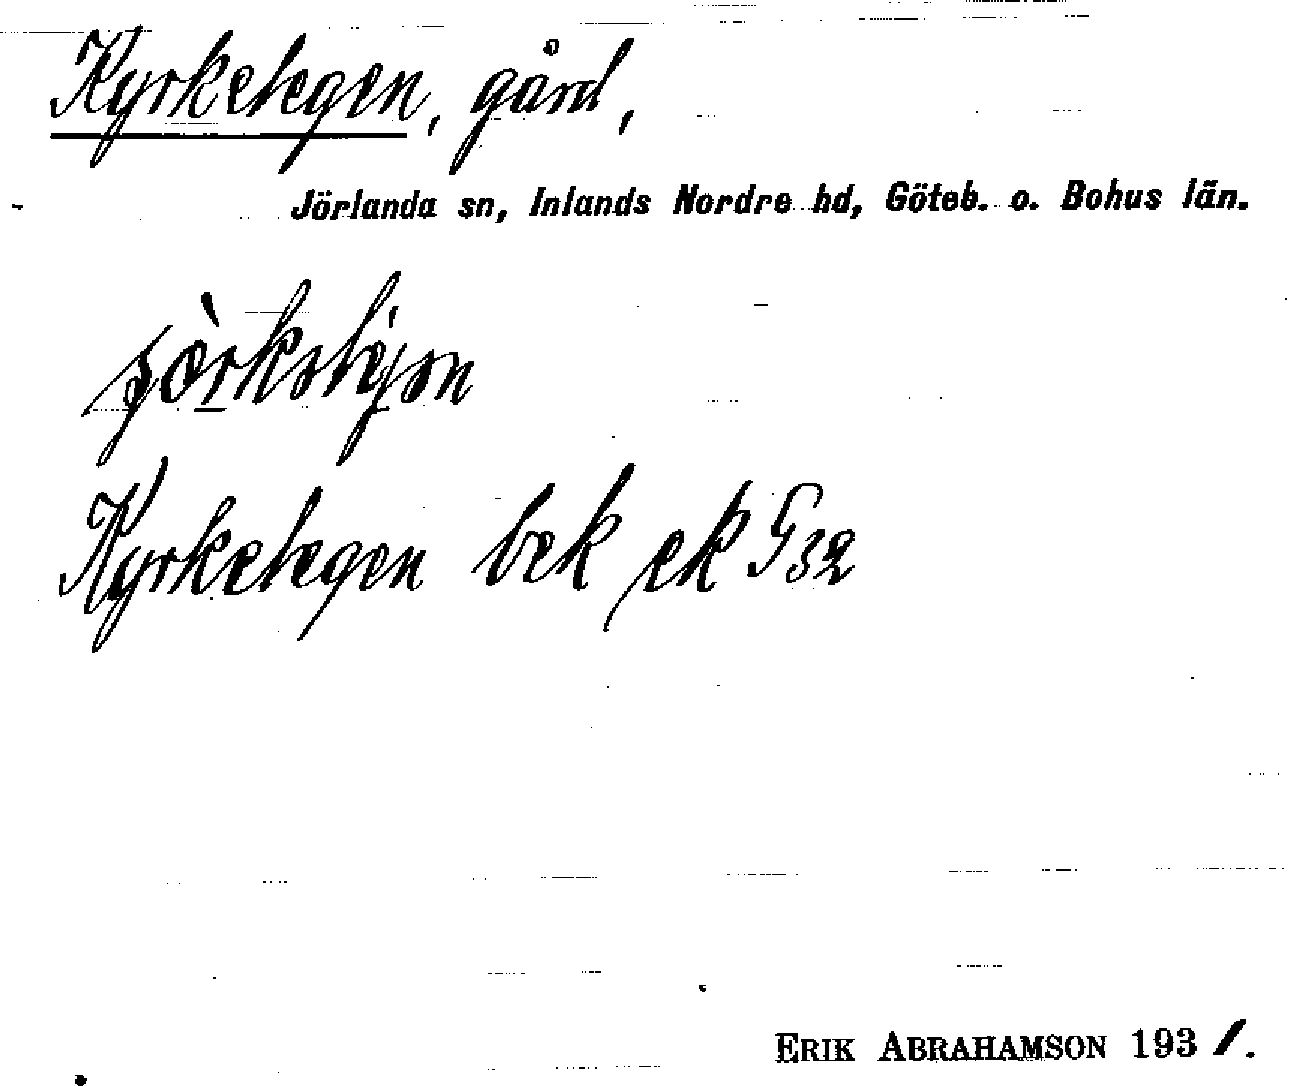 Kyrketegen, gård,
Jörlanda sn, Inlands Nordre hd, Göteb. o. Bohus län.
Kyrketegen bek ek G32
ERIK ABRAHAMSON 1931.